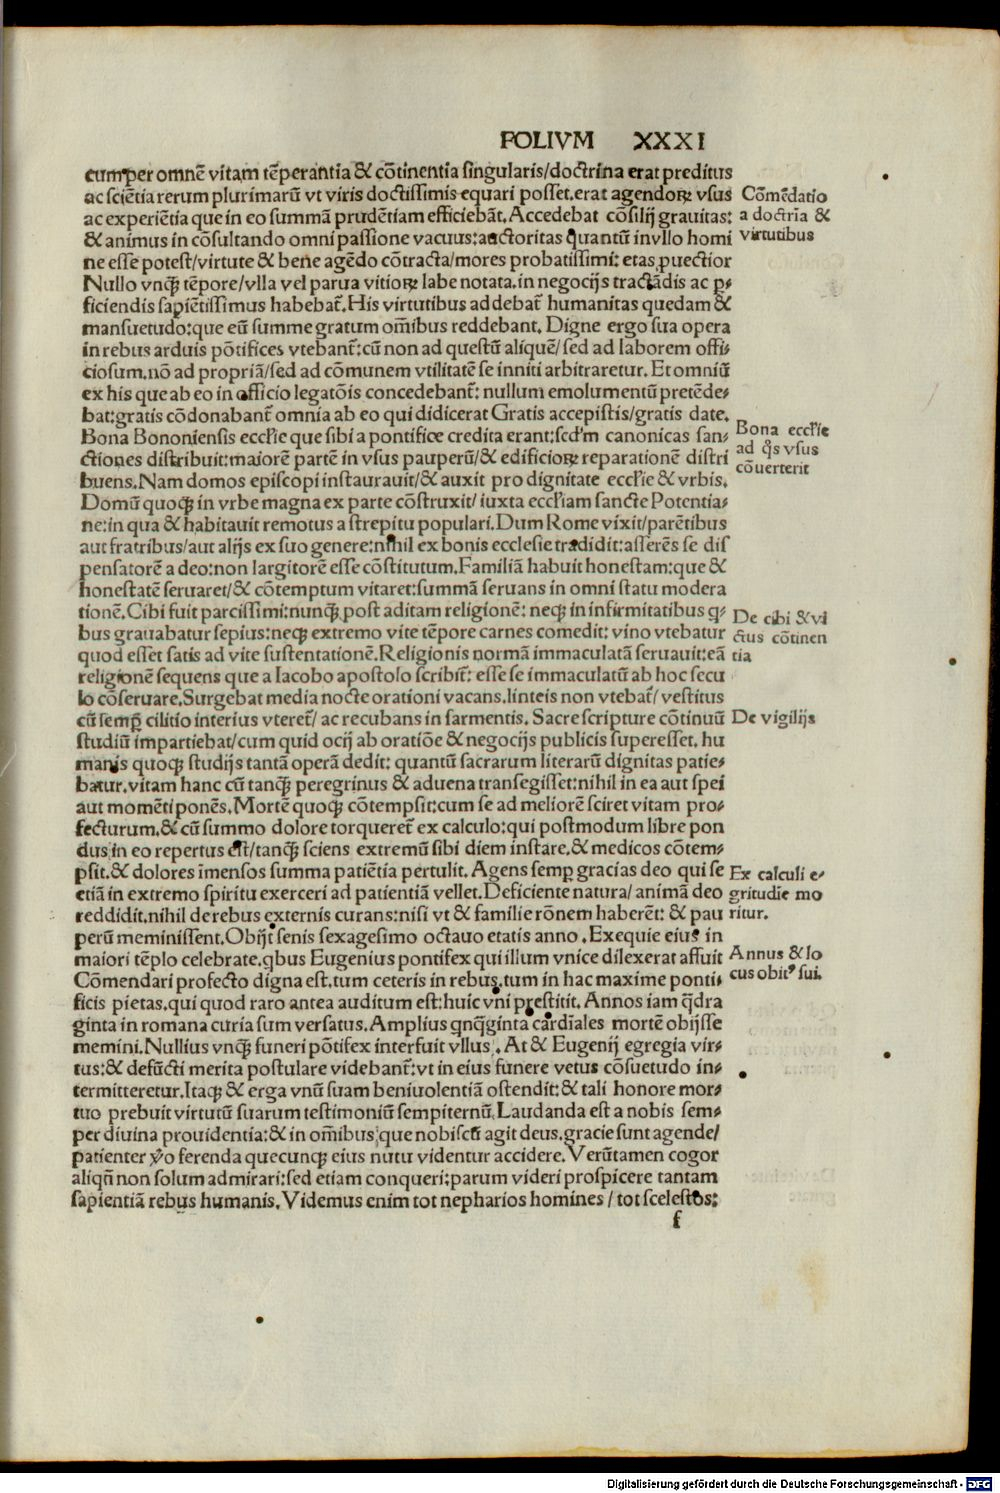 FOLIVM XXXI
cum per omnē vitam tēperantia & cōtinentia singularis/doctrina erat preditus
ac sciētia rerum plurimarū vt viris doctissimis equari posset. erat agendoꝝ vsus
ac experiētia que in eo summā prudētiam efficiebāt. Accedebat cōsilij grauitas:
& animus in cōsultando omni passione vacuus: auctoritas quantū in vllo homi
ne esse potest/virtute & bene agēdo cōtracta/mores probatissimi: etas ꝓuectior
Nullo vnqꝫ tēpore/vlla vel parua vitioꝝ labe notata. in negocijs tractādis ac ꝑ-
ficiendis sapiētissimus habebat̄. His virtutibus addebat̄ humanitas quedam &
mansuetudo: que eū summe gratum om̄ibus reddebant. Digne ergo sua opera
in rebus arduis pōtifices vtebant̄: cū non ad questū aliquē/sed ad laborem offi-
ciosum. nō ad propriā/sed ad cōmunem vtilitatē se inniti arbitraretur. Et omniū
ex his que ab eo in officio legatōis concedebant̄: nullum emolumentū pretēde-
bat: gratis cōdonabant̄ omnia ab eo qui didicerat Gratis accepistis/gratis date.
Bona Bononiensis eccl̄ie que sibi a pontifice credita erant: scd̄m canonicas san-
ctiones distribuit: maiorē partē in vsus pauperū/& edificioꝝ reparationē distri
buens. Nam domos episcopi instaurauit/& auxit pro dignitate eccl̄ie & vrbis.
Domū quoqꝫ in vrbe magna ex parte cōstruxit/iuxta eccl̄iam sancte Potentia-
ne: in qua & habitauit remotus a strepitu populari. Dum Rome vixit/parētibus
aut fratribus/aut alijs ex suo genere: nihil ex bonis ecclesie tradidit: asserēs se dis
pensatorē a deo: non largitorē esse cōstitutum. Familiā habuit honestam: que &
honestatē seruaret/& cōtemptum vitaret: summā seruans in omni statu modera
tionē. Cibi fuit parcissimi: nunqꝫ post aditam religionē: neqꝫ in infirmitatibus q̄-
bus grauabatur sepius: neqꝫ extremo vite tēpore carnes comedit: vino vtebatur
quod esset satis ad vite sustentationē. Religionis normā immaculatā seruauit: eā
religionē sequens que a Iacobo apostolo scribit̄: esse se immaculatū ab hoc secu
lo cōseruare. Surgebat media nocte orationi vacans. linteis non vtebat̄/vestitus
cū semꝑ cilitio interius vteret̄/ac recubans in sarmentis. Sacre scripture cōtinuū
studiū impartiebat/cum quid ocij ab oratiōe & negocijs publicis superesset. hu
manis quoqꝫ studijs tantā operā dedit: quantū sacrarum literarū dignitas patie-
batur. vitam hanc cū tanqꝫ peregrinus & aduena transegisset: nihil in ea aut spei
aut momēti ponēs. Mortē quoqꝫ cōtempsit: cum se ad meliorē sciret vitam pro-
fecturum. & cū summo dolore torqueret̄ ex calculo: qui postmodum libre pon
dus in eo repertus est/tanqꝫ sciens extremū sibi diem instare. & medicos cōtem-
psit. & dolores īmensos summa patiētia pertulit. Agens semꝑ gracias deo qui se
etiā in extremo spiritu exerceri ad patientiā vellet. Deficiente natura/animā deo
reddidit. nihil de rebus externis curans: nisi vt & familie rōnem haberēt: & pau
perū meminissent. Obijt senis sexagesimo octauo etatis anno. Exequie eius in
maiori tēplo celebrate. q̄bus Eugenius pontifex qui illum vnice dilexerat affuit
Cōmendari profecto digna est. tum ceteris in rebus. tum in hac maxime ponti-
ficis pietas. qui quod raro antea auditum est: huic vni prestitit. Annos iam q̄dra
ginta in romana curia sum versatus. Amplius qnq̄ginta cardīales mortē obijsse
memini. Nullius vnqꝫ funeri pōtifex interfuit vllus. At & Eugenij egregia vir-
tus: & defūcti merita postulare videbant̄: vt in eius funere vetus cōsuetudo in-
termitteretur. Itaqꝫ & erga vnū suam beniuolentiā ostendit: & tali honore mor-
tuo prebuit virtutū suarum testimoniū sempiternū. Laudanda est a nobis sem-
per diuina prouidentia: & in om̄ibus que nobiscū agit deus. gracie sunt agende/
patienter v̄o ferenda quecunqꝫ eius nutu videntur accidere. Verūtamen cogor
aliqn̄ non solum admirari: sed etiam conqueri: parum videri prospicere tantam
sapientiā rebus humanis. Videmus enim tot nepharios homines/tot scelestos:
f
Cōmēdatio
a doctrīa &
virtutibus
Bona eccl̄ie
ad q̄s vsus
cōuerterit
De cibi & vi
ctus cōtinen
tia
De vigilijs
Ex calculi e-
gritudīe mo
ritur.
Annus & lo
cus obitꝰ sui.
Digitalisierung gefördert durch die Deutsche Forschungsgemeinschaft - DFG